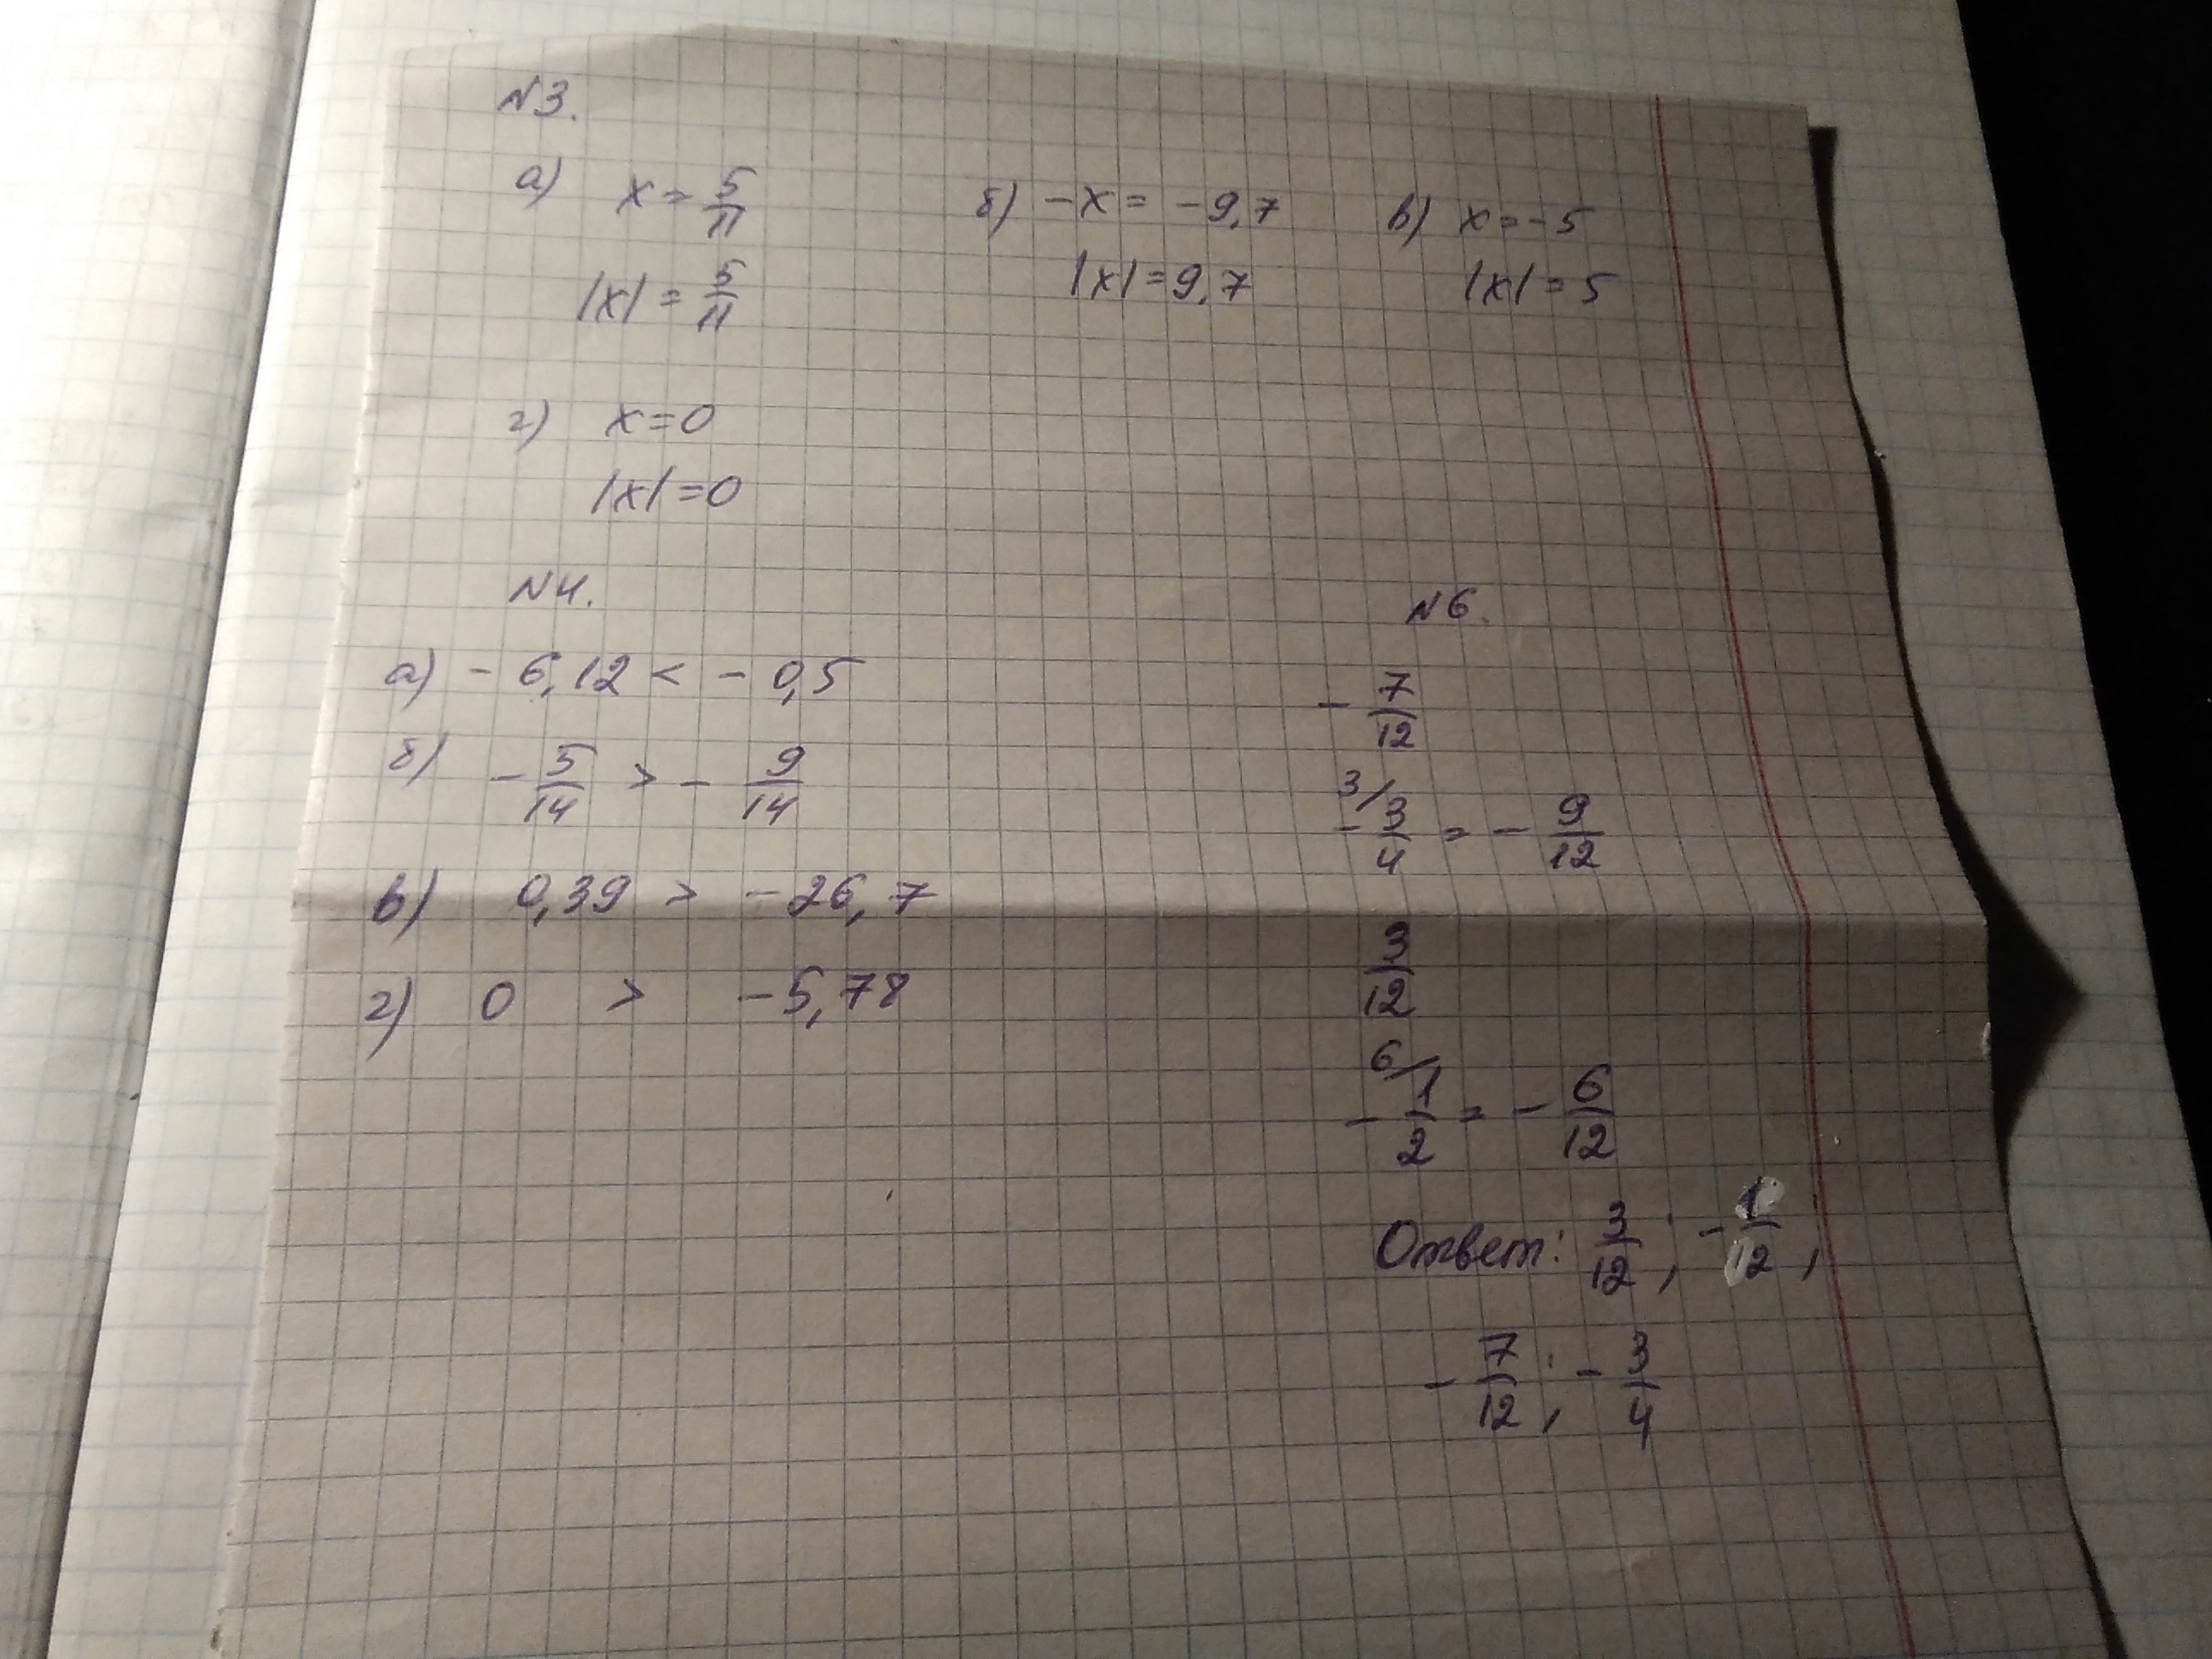 N3.
а) x = 5/11 б) -x = -9,7 в) x = -5
|x| = 5/11 |x| = 9,7 |x| = 5
г) x = 0
|x| = 0
N4.
а) - 6,12 < - 0,5
б) - 5/14 > - 9/14
в) 0,39 > - 26,7
г) 0 > - 5,78
N6.
- 7/12
3/ - 3/4 = - 9/12
3/12
6/ - 1/2 = - 6/12
Ответ: 3/12 ; - 1/12 ;
- 7/12 ; - 3/4